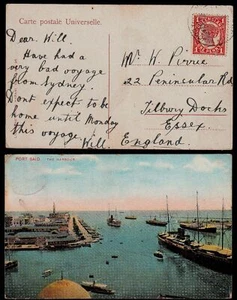 Carte postale Universelle.
Dear. Will.
Have had a
very bad voyage
from Sydney.
Dont expect to be
home until Monday
this voyage.
Will.
Mr W. Pirrie
22 Peninsular Rd
Tilbury Docks
Essex.
England.
PORT SAID THE HARBOUR